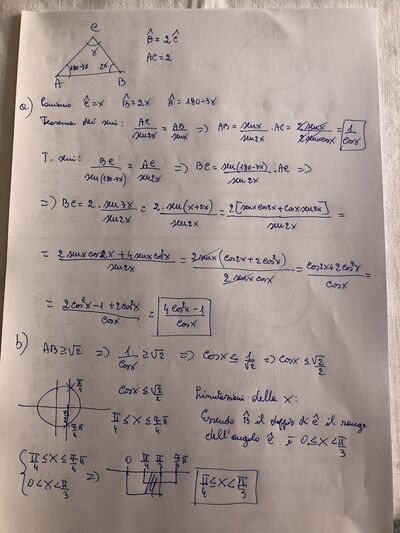 C
x
B̂ = 2Ĉ
AC = 2
180-3x 2x
A B
a) Poniamo Ĉ = x B̂ = 2x Â = 180-3x
Teorema dei seni: AC/sen2x = AB/senx => AB = senx/sen2x · AC = 2senx/2senxcosx = 1/cosx
T. seni: BC/sen(180-3x) = AC/sen2x => BC = sen(180-3x)/sen2x · AC =>
=> BC = 2·sen3x/sen2x = 2·sen(x+2x)/sen2x = 2[senxcos2x+cosxsen2x]/sen2x =
= 2senxcos2x + 4senxcos²x/sen2x = 2senx(cos2x+2cos²x)/2senxcosx = cos2x+2cos²x/cosx =
= 2cos²x-1+2cos²x/cosx = 4cos²x-1/cosx
b) AB ≥ √2 => 1/cosx ≥ √2 => cosx ≤ 1/√2 => cosx ≤ √2/2
π/4
cosx ≤ √2/2
Limitazioni della x:
π/4 ≤ x ≤ 7/4π
Essendo B̂ il doppio di Ĉ il range
dell'angolo Ĉ è 0<x<π/3
7/4π
{ π/4 ≤ x ≤ 7/4π
0<x<π/3
=>
0 π/4 π/3 7/4π
π/4 ≤ x < π/3